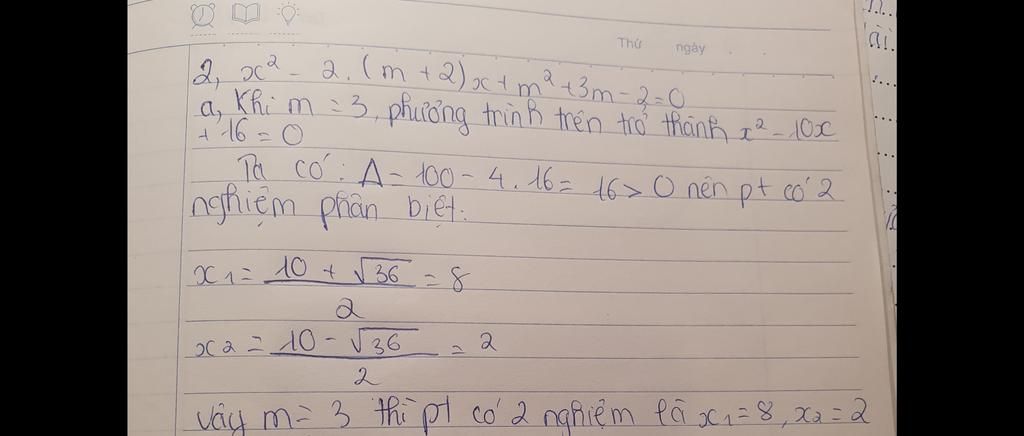 Thứ ngày
2, x² - 2.(m+2)x+m²+3m-2=0
a, Khi m = 3, phương trình trên trở thành x² - 10x
+ 16 = 0
Ta có: Δ= 100 - 4.16= 16> 0 nên pt có 2
nghiệm phân biệt:
x1= (10 + √36)/2 = 8
x2 = (10 - √36)/2 = 2
vậy m= 3 thì pt có 2 nghiệm là x1=8, x2=2